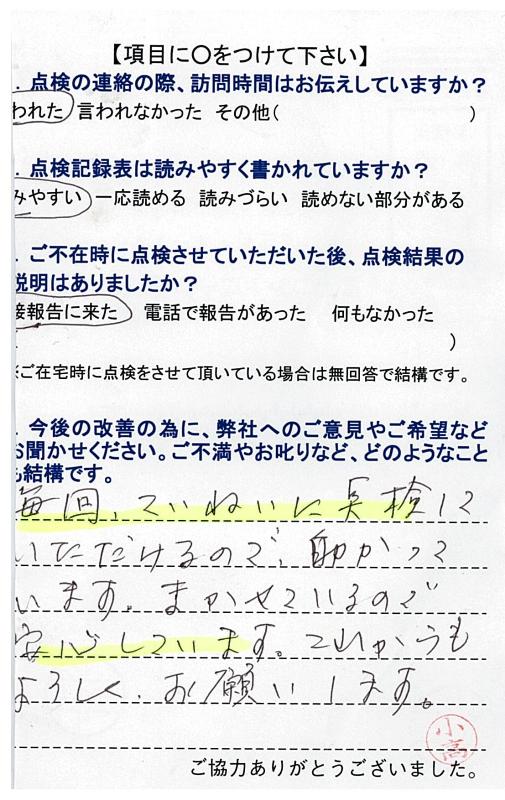 【項目に〇をつけて下さい】
．点検の連絡の際、訪問時間はお伝えしていますか？
われた 言われなかった その他( )
．点検記録表は読みやすく書かれていますか？
みやすい 一応読める 読みづらい 読めない部分がある
．ご不在時に点検させていただいた後、点検結果の
説明はありましたか？
接報告に来た 電話で報告があった 何もなかった
)
※ご在宅時に点検をさせて頂いている場合は無回答で結構です。
．今後の改善の為に、弊社へのご意見やご希望など
お聞かせください。ご不満やお叱りなど、どのようなこと
も結構です。
毎回、ていねいに点検して
いただけるので、助かって
います。まかせているので
安心しています。これからも
よろしく、お願いします。
小高
ご協力ありがとうございました。